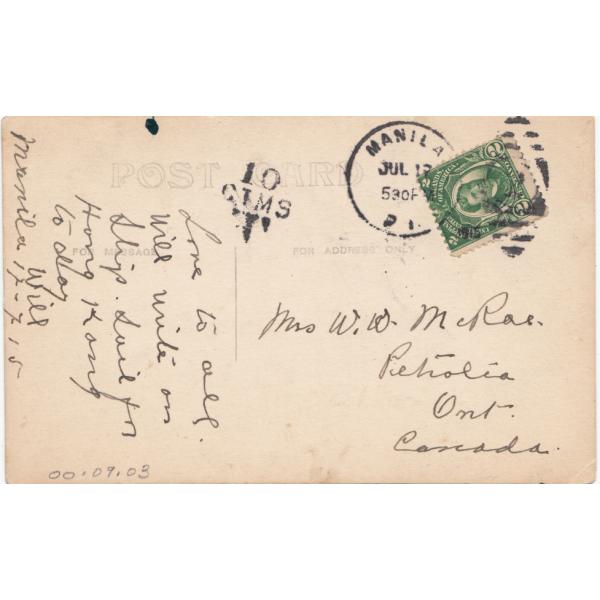 POST CARD
FOR MESSAGE
FOR ADDRESS ONLY
10
CTMS
MANILA
JUL 17
530P
P.I.
2
Love to all.
Will write on
Ship. Sail for
Hong Kong
to day
Will
Manila 17-7-15
Mrs W. W. McRae.
Petrolia
Ont.
Canada.
00.09.03